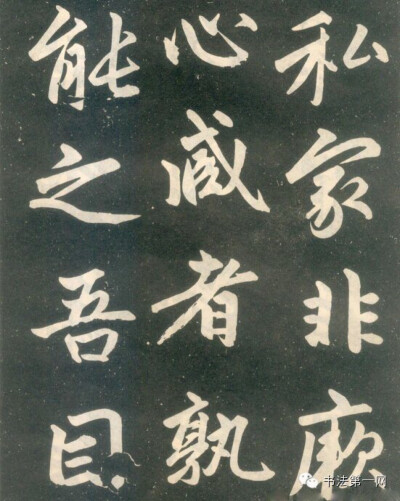 私家非厥
心臧者孰
能之吾目
书法第一网